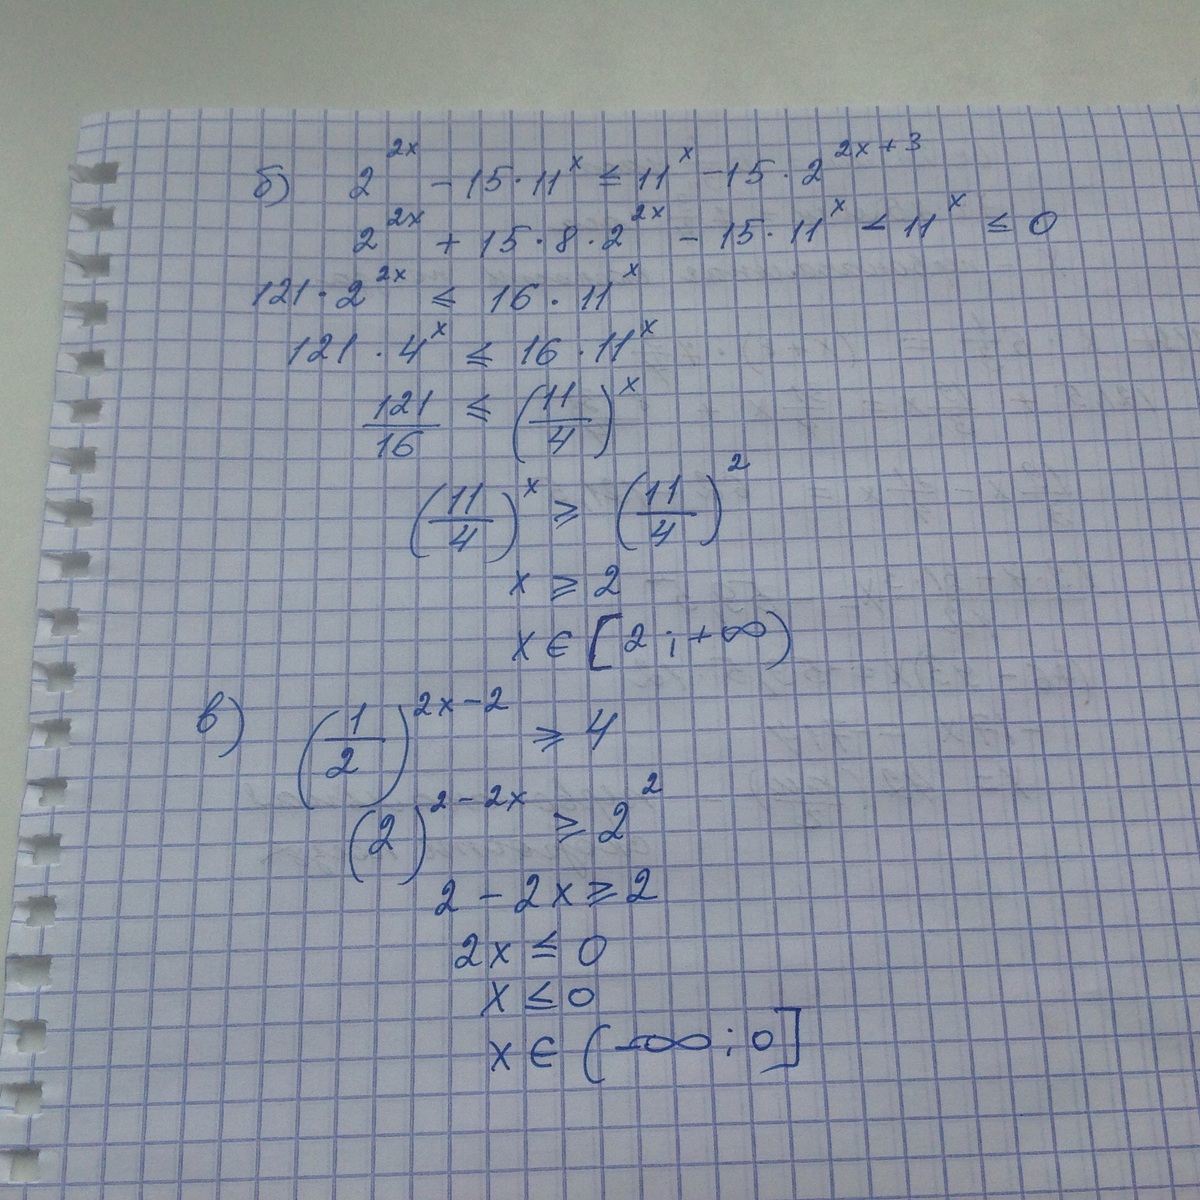 б) 2^{2x} - 15 · 11^x ≤ 11^x - 15 · 2^{2x+3}
2^{2x} + 15 · 8 · 2^{2x} - 15 · 11^x - 11^x ≤ 0
121 · 2^{2x} ≤ 16 · 11^x
121 · 4^x ≤ 16 · 11^x
121/16 ≤ (11/4)^x
(11/4)^x ≥ (11/4)^2
x ≥ 2
x ∈ [2; +∞)
в) (1/2)^{2x-2} ≥ 4
(2)^{2-2x} ≥ 2^2
2 - 2x ≥ 2
2x ≤ 0
x ≤ 0
x ∈ (-∞; 0]